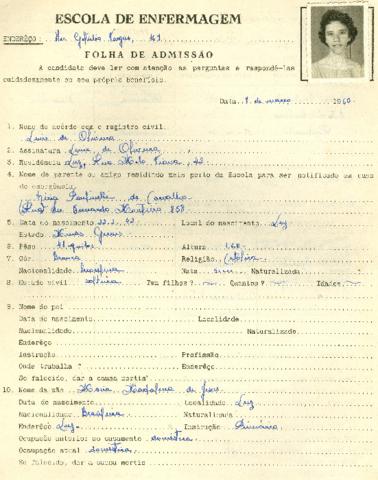 ESCOLA DE ENFERMAGEM
ENDERÊÇO: Av. Getúlio Vargas, 163
FOLHA DE ADMISSÃO
A candidata deve ler com atenção as perguntas e respondê-las
cuidadosamente em seu próprio benefício.
Data 1 de março 1960
1. Nome de acôrdo com o registro civil
de Oliveira
2. Assinatura de Oliveira
3. Residência Luz, Rua Melo Viana, 42
4. Nome de parente ou amigo residindo mais perto da Escola para ser notificado em caso
de emergência
de Carvalho
Bernardo Monteiro 858
5. Data do nascimento Local do nascimento Luz
Estado Minas Gerais
6. Pêso quilos Altura 1,68
7. Côr Branca Religião Católica
Nacionalidade brasileira Nata sim Naturalizada ?
8. Estado civil solteira Tem filhos? Quantos? Idades
9. Nome do pai
Data do nascimento Localidade
Nacionalidade Naturalizado
Enderêço
Instrução Profissão
Onde trabalha ? Enderêço
Se falecido, dar a causa mortis
10. Nome da mãe Maria Madalena de Jesus
Data do nascimento Localidade Luz
Nacionalidade Brasileira Naturalizada
Enderêço Luz Instrução Primária
Ocupação anterior ao casamento doméstica
Ocupação atual doméstica
Se falecida, dar a causa mortis